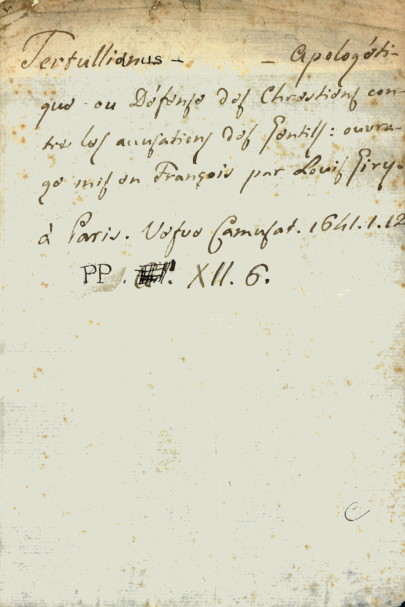 Tertullianus - - Apologéti-
que ou Défense des Chrestiens con-
tre les accusations des Gentils : ouvra-
ge mis en François par Louis Giry.
à Paris. Vefve Camusat. 1641. 1. 12
PP . . XII. 6.